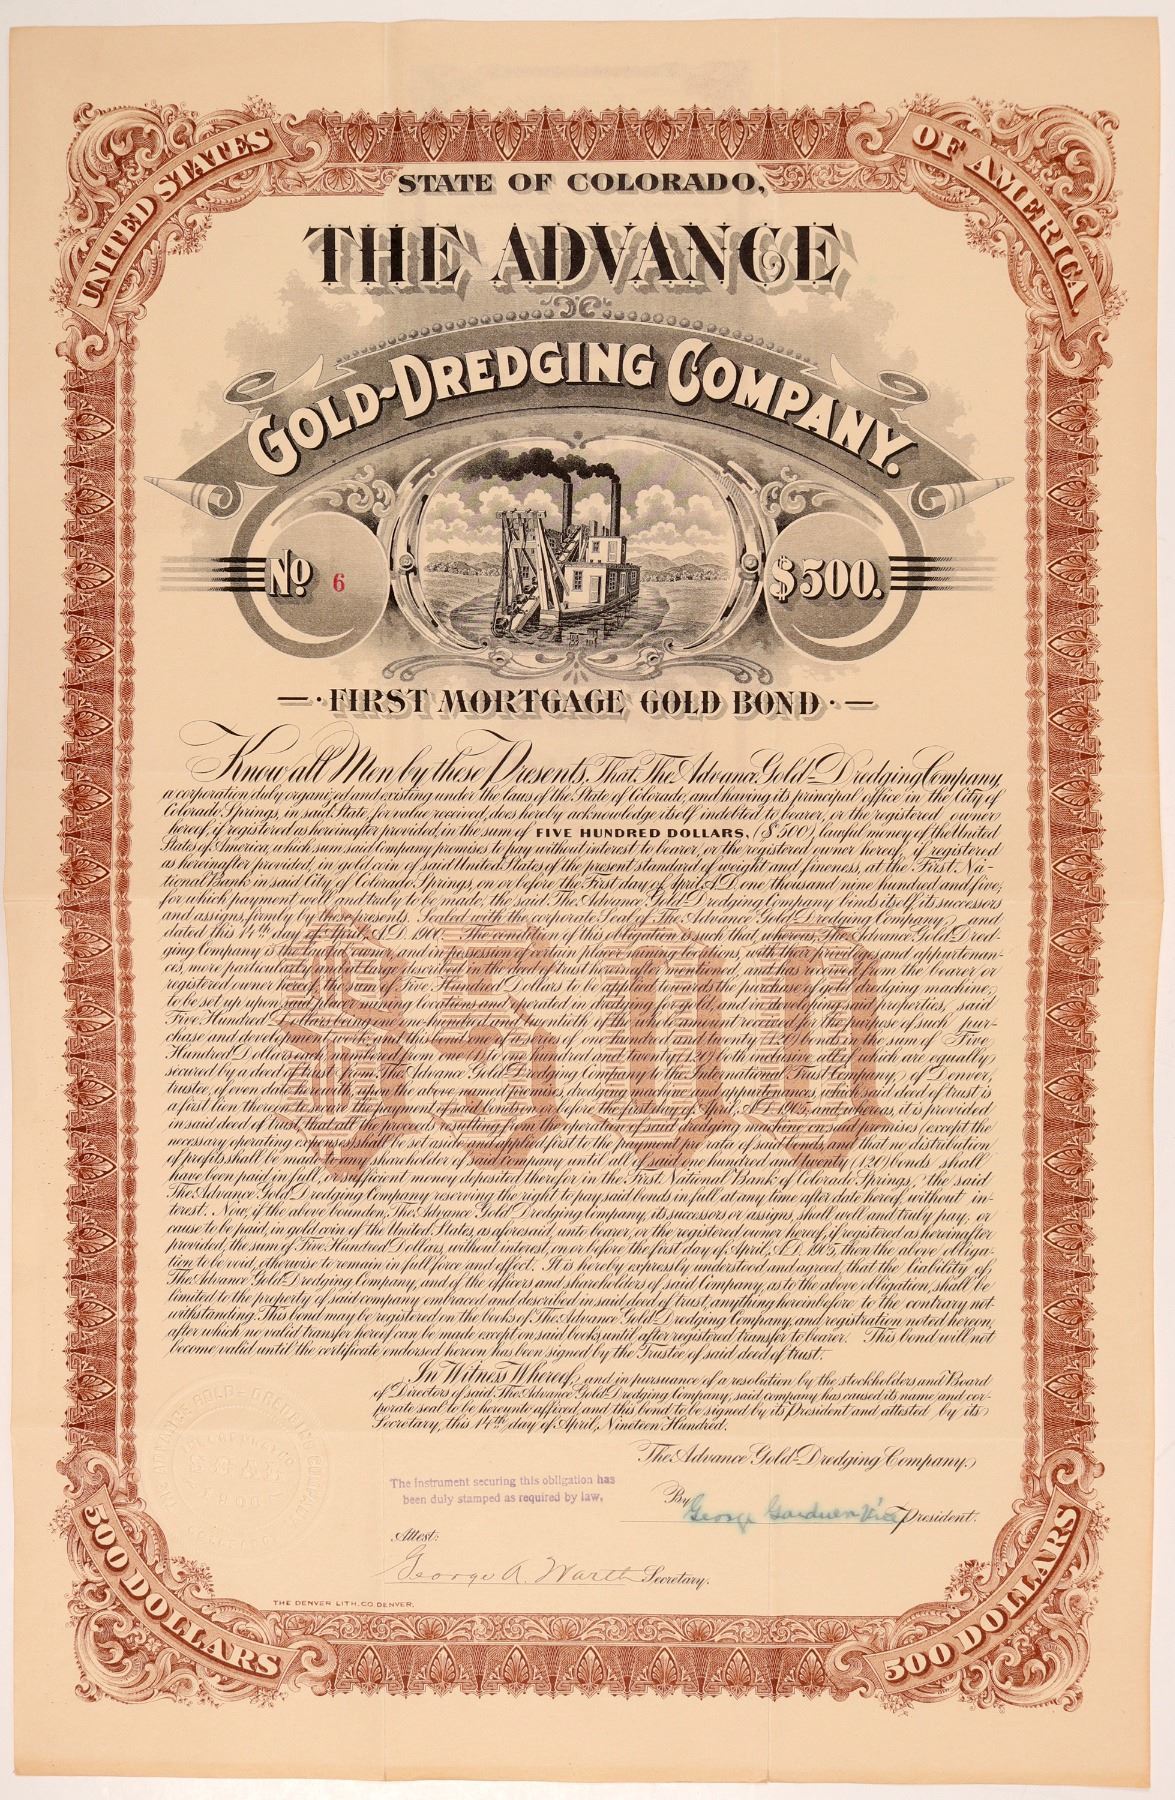 UNITED STATES
OF AMERICA
STATE OF COLORADO,
THE ADVANCE
GOLD-DREDGING COMPANY.
No. 6
$500.
FIRST MORTGAGE GOLD BOND
Know all Men by these Presents, That, The Advance Gold-Dredging Company,
a corporation duly organized and existing under the laws of the State of Colorado, and having its principal office in the City of
Colorado Springs, in said State, for value received, does hereby acknowledge itself indebted to bearer, or the registered owner
hereof, if registered as hereinafter provided, in the sum of FIVE HUNDRED DOLLARS, ($500), lawful money of the United
States of America, which sum said Company promises to pay without interest to bearer, or the registered owner hereof, if registered
as hereinafter provided, in gold coin of said United States of the present standard of weight and fineness, at the First Na-
tional Bank in said City of Colorado Springs, on or before the First day of April, A.D. one thousand nine hundred and five,
for which payment well and truly to be made, the said, The Advance Gold-Dredging Company binds itself, its successors
and assigns, firmly by these presents. Sealed with the corporate Seal of The Advance Gold-Dredging Company, and
dated this 14th day of April, A.D. 1900. The condition of this obligation is such that, whereas, The Advance Gold-Dred-
ging Company is the lawful owner, and in possession of certain placer mining locations, with their privileges and appurtenan-
ces, more particularly and at large described in the deed of trust hereinafter mentioned, and has received from the bearer or
registered owner hereof, the sum of Five Hundred Dollars to be applied towards the purchase of gold dredging machine,
to be set up upon said placer mining locations and operated in dredging for gold, and in developing said properties, said
Five Hundred Dollars being one one-hundred and twentieth of the whole amount received for the purpose of such pur-
chase and development work, and this bond one of a series of one hundred and twenty (120) bonds in the sum of Five
Hundred Dollars each, numbered from one (1) to one hundred and twenty (120) both inclusive, all of which are equally
secured by a deed of trust from The Advance Gold-Dredging Company to the International Trust Company, of Denver,
trustee, of even date herewith, upon the above named premises, dredging machine and appurtenances, which said deed of trust is
a first lien thereon to secure the payment of said bonds on or before the first day of April, A.D. 1905, and whereas, it is provided
in said deed of trust, that all the proceeds resulting from the operation of said dredging machine on said premises (except the
necessary operating expenses) shall be set aside and applied first to the payment pro rata of said bonds, and that no distribution
of profits shall be made to any shareholder of said Company until all of said one hundred and twenty (120) bonds shall
have been paid in full, or sufficient money deposited therefor in the First National Bank of Colorado Springs, the said
The Advance Gold-Dredging Company reserving the right to pay said bonds in full at any time after date hereof, without in-
terest. Now, if the above bounden, The Advance Gold-Dredging Company, its successors or assigns, shall well and truly pay, or
cause to be paid, in gold coin of the United States, as aforesaid, unto bearer, or the registered owner hereof, if registered as hereinafter
provided, the sum of Five Hundred Dollars, without interest, on or before the first day of April, A.D. 1905, then the above obliga-
tion to be void, otherwise to remain in full force and effect. It is hereby expressly understood and agreed, that the liability of
The Advance Gold-Dredging Company, and of the officers and shareholders of said Company, as to the above obligation, shall be
limited to the property of said company embraced and described in said deed of trust, anything hereinbefore to the contrary not-
withstanding. This bond may be registered on the books of The Advance Gold-Dredging Company, and registration noted hereon,
after which no valid transfer hereof can be made except on said books, until after registered transfer to bearer. This bond will not
become valid until the certificate endorsed hereon has been signed by the Trustee of said deed of trust.
In Witness Whereof, and in pursuance of a resolution by the stockholders and Board
of Directors of said, The Advance Gold-Dredging Company, said company has caused its name and cor-
porate seal to be hereunto affixed, and this bond to be signed by its President and attested by its
Secretary, this 14th day of April, Nineteen Hundred.
The Advance Gold-Dredging Company,
The instrument securing this obligation has
been duly stamped as required by law.
By George Gardner Vice President.
Attest:
George A. Warth Secretary.
THE DENVER LITH. CO. DENVER.
500 DOLLARS
500 DOLLARS